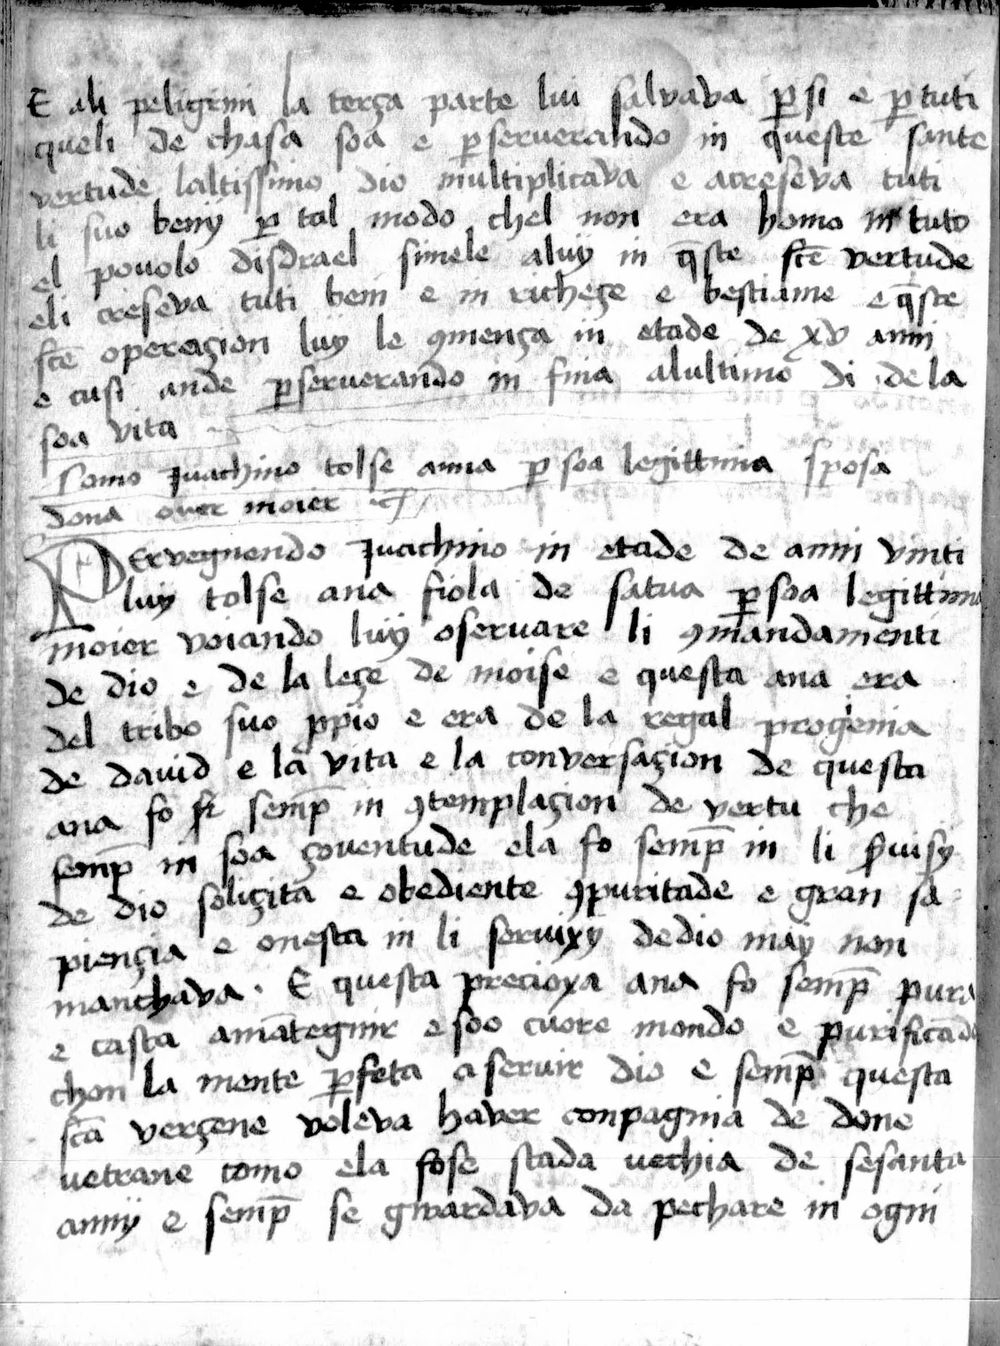 E ali peligrini la terça parte lui salvava ꝑ si e ꝑ tuti
queli de chasa soa e ꝑserverando in queste sante
vertude laltissimo dio multiplicava e acreseva tuti
li suo benij ꝑ tal modo chel non era homo in tuto
el povolo disdrael simele a luij in q̄ste sc̄te vertude
eli creseva tuti beni e in richeçe e bestiame e q̄ste
sc̄te operaçion luij le ꝯmença in etade de xv anni
e cusi ande ꝑserverando in fina alultimo di de la
soa vita
Como Juachino tolse anna ꝑ soa legittima sposa
dona over moier
PErvegnendo Juachino in etade de anni vinti
luij tolse ana fiola de satua ꝑ soa legittima
moier voiando luij oservare li ꝯmandamenti
de dio e de la leçe de moise e questa ana era
del tribo suo ꝓpio e era de la regal progenia
de david e la vita e la conversaçion de questa
ana fo semp̄ in ꝯtemplaçion de vertu che
semp̄ in soa çoventude ela fo semp̄ in li s̄visij
de dio soliçita e obediente ꝯ puritade e gran sa
piençia e onesta in li servixij de dio maij non
manchava. E questa precioxa ana fo semp̄ pura
e casta amātegnir e soo cuore mondo e purificado
chon la mente ꝑfeta a servir dio e semp̄ questa
sc̄a verçene voleva haver conpagnia de done
vetrane como ela fose stada vechia de sesanta
annij e semp̄ se gwardava da pechare in ogni